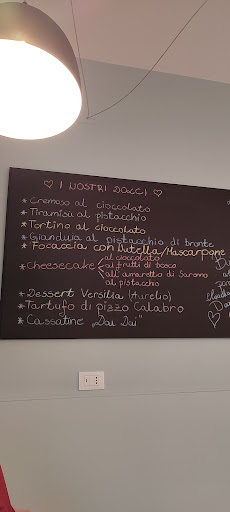 ♡ I NOSTRI DOLCI ♡
* Cremoso al cioccolato
* Tiramisu al pistacchio
* Tortino al cioccolato
* Gianduia al pistacchio di bronte
* Focaccia con Nutella/Mascarpone
* Cheesecake
al cioccolato
ai frutti di bosco
all'amaretto di Sarono
al pistacchio
* Dessert Versilia (Aurelio)
* Tartufo di pizzo Calabro
* Cassatine "Dai Dai"